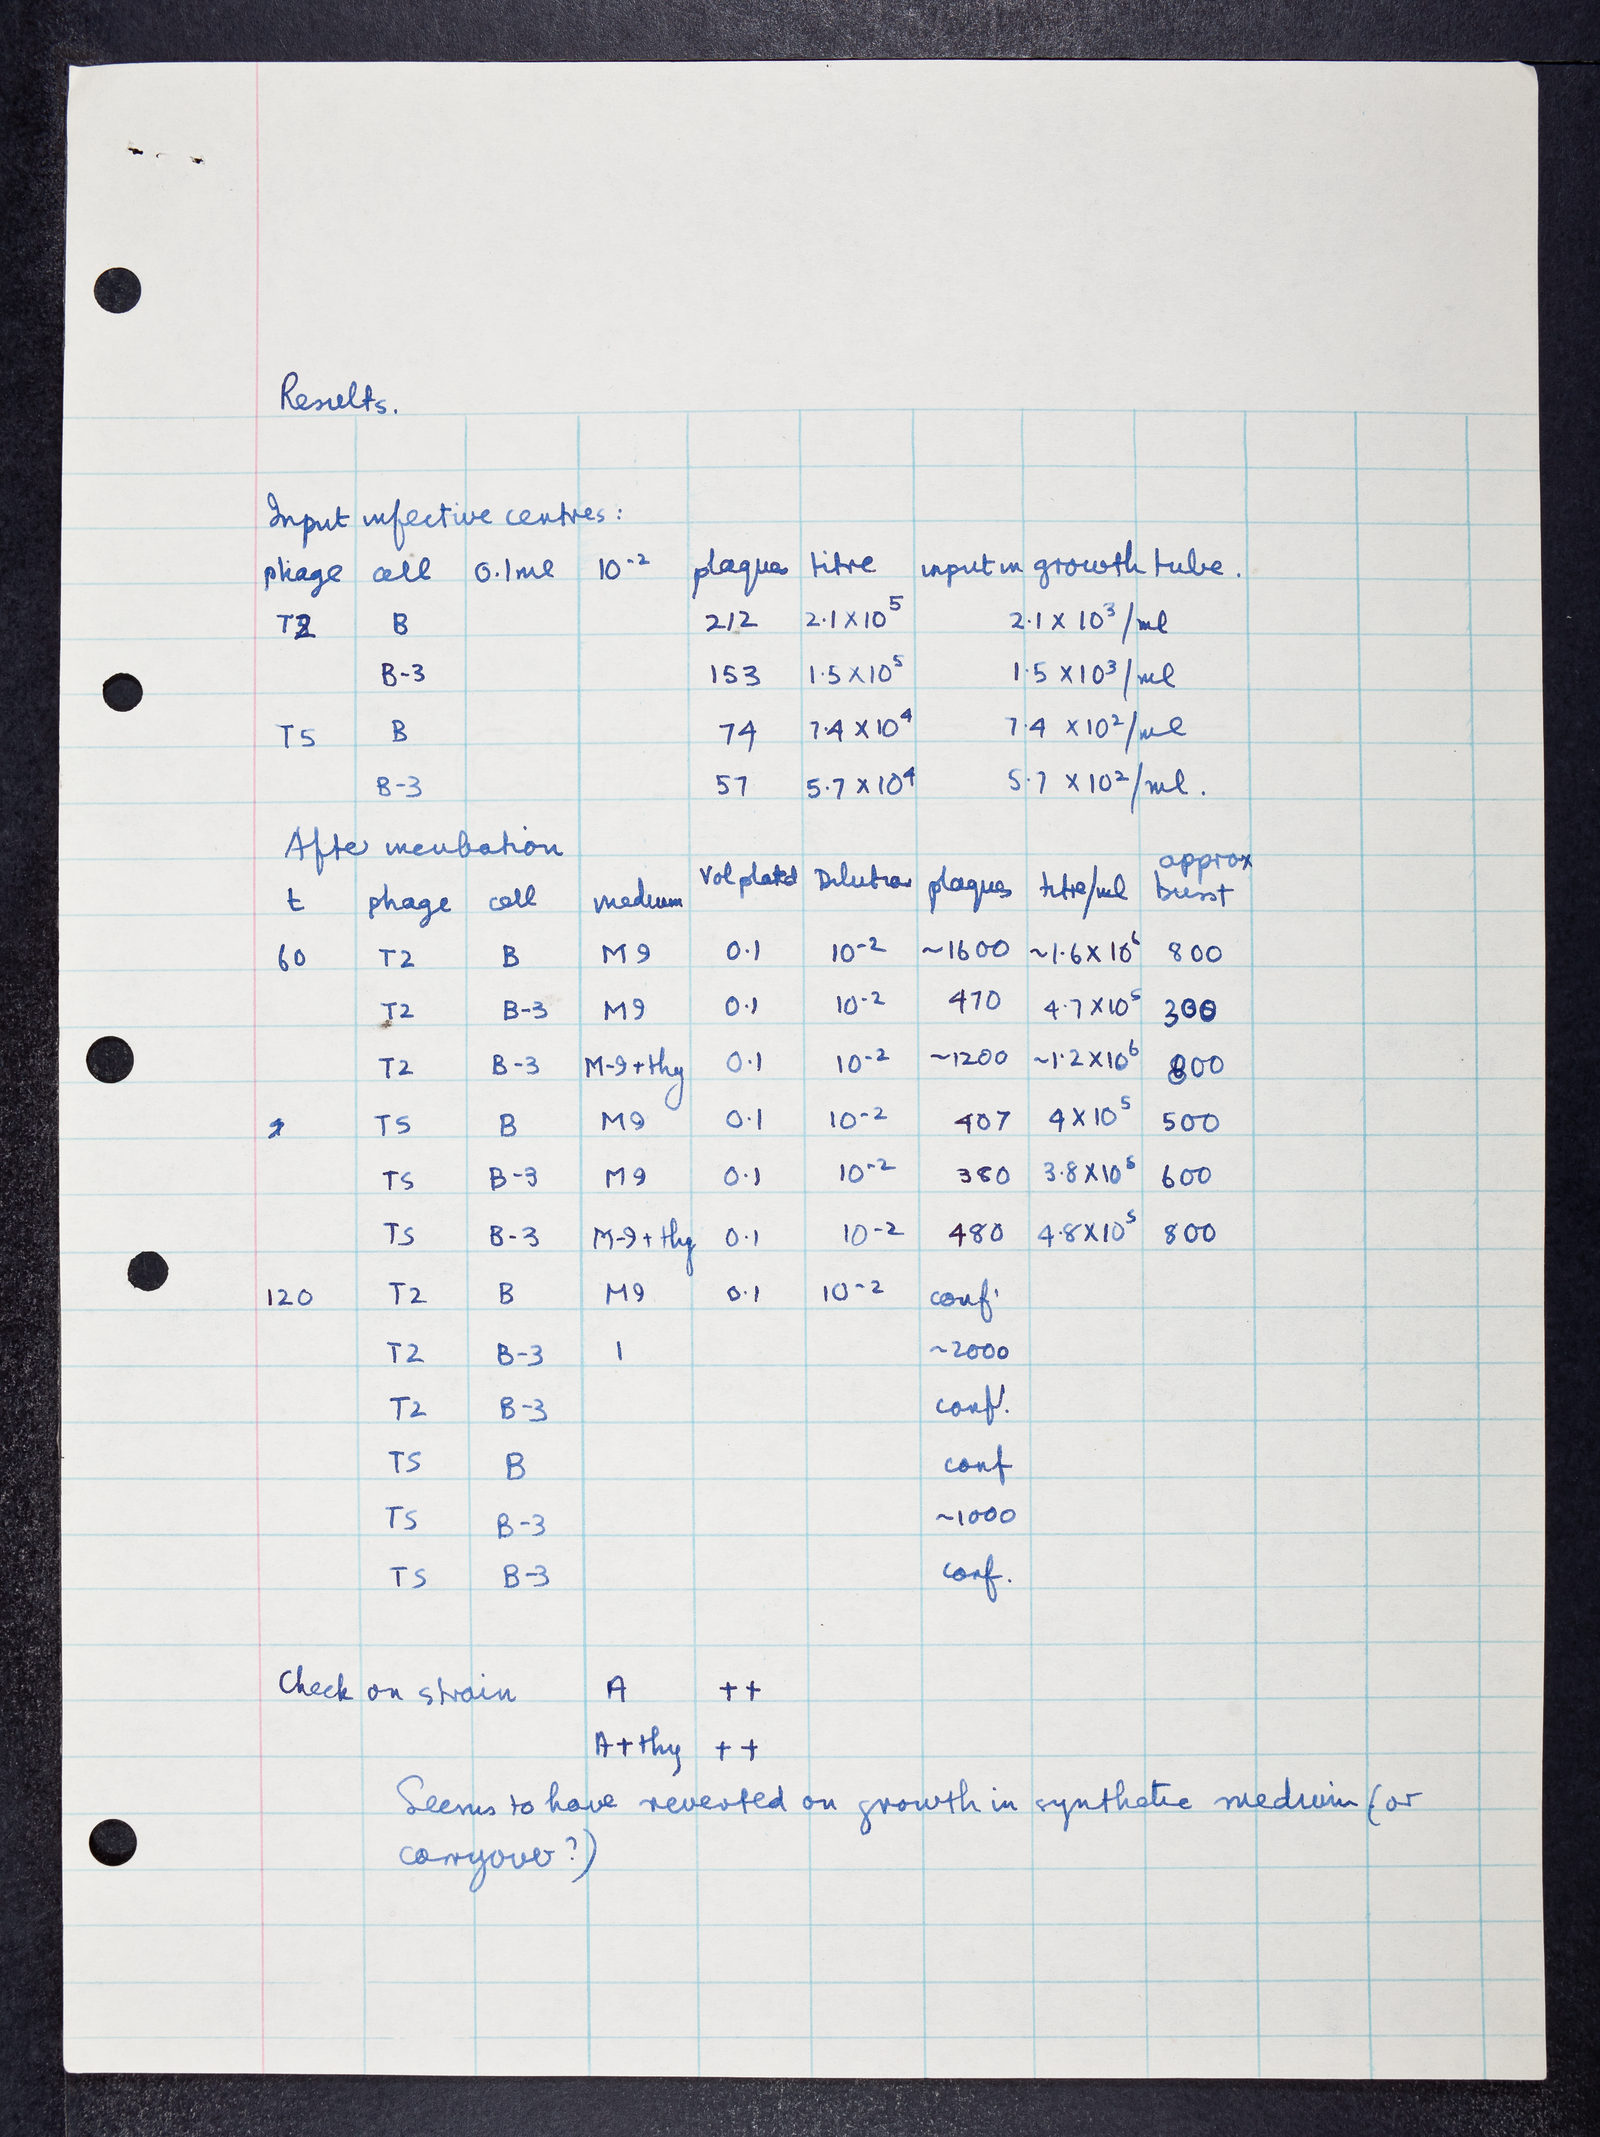 Results.
Input infective centres:
phage cell 0.1ml 10⁻² plaques titre input in growth tube.
T2 B 212 2.1 x 10⁵ 2.1 x 10³/ml
B-3 153 1.5 x 10⁵ 1.5 x 10³/ml
T5 B 74 7.4 x 10⁴ 7.4 x 10²/ml
B-3 57 5.7 x 10⁴ 5.7 x 10²/ml.
After incubation
t phage cell medium Vol plated Dilution plaques titre/ml approx burst
60 T2 B M9 0.1 10⁻² ~1600 ~1.6 x 10⁶ 800
T2 B-3 M9 0.1 10⁻² 470 4.7 x 10⁵ 300
T2 B-3 M-9+thy 0.1 10⁻² ~1200 ~1.2 x 10⁶ 800
T5 B M9 0.1 10⁻² 407 4 x 10⁵ 500
T5 B-3 M9 0.1 10⁻² 380 3.8 x 10⁵ 600
T5 B-3 M-9+thy 0.1 10⁻² 480 4.8 x 10⁵ 800
120 T2 B M9 0.1 10⁻² conf'
T2 B-3 | ~2000
T2 B-3 conf'.
T5 B conf
T5 B-3 ~1000
T5 B-3 conf.
Check on strain A ++
A+thy ++
Seems to have reverted on growth in synthetic medium (or
carryover?)